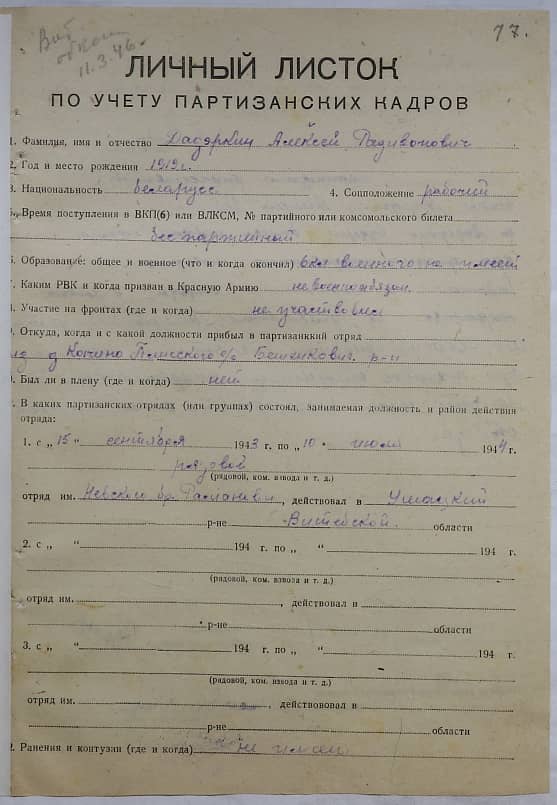 Вит
обком
11.3.46г.
17.
ЛИЧНЫЙ ЛИСТОК
ПО УЧЕТУ ПАРТИЗАНСКИХ КАДРОВ
1. Фамилия, имя и отчество Дадэркин Алексей Радивонович
2. Год и место рождения 1919г.
3. Национальность беларусс 4. Соцположение рабочей
5. Время поступления в ВКП(б) или ВЛКСМ, № партийного или комсомольского билета
беспартийный
6. Образование: общее и военное (что и когда окончил) 6кл военного не имеет
7. Каким РВК и когда призван в Красную Армию невоеннообязан.
8. Участие на фронтах (где и когда) не участвовал
9. Откуда, когда и с какой должности прибыл в партизанкий отряд
д. с/с Бешенкович. р-н
Был ли в плену (где и когда) нет
В каких партизанских отрядах (или группах) состоял, занимаемая должность и район действия
отряда:
1. с „ 15 “ сентября 1943 г. по „ 10 “ июля 1944 г.
рядовой
(рядовой, ком. взвода и т. д.)
отряд им. Невского бр. , действовал в Ушацкий
р-не Витебской области
2. с „ “ 194 г. по „ “ 194 г.
(рядовой, ком. взвода и т. д.)
отряд им. , действовал в
р-не области
3. с „ “ 194 г. по „ “ 194 г.
(рядовой, ком. взвода и т. д.)
отряд им. , действововал в
р-не области
2. Ранения и контузии (где и когда) не имеет